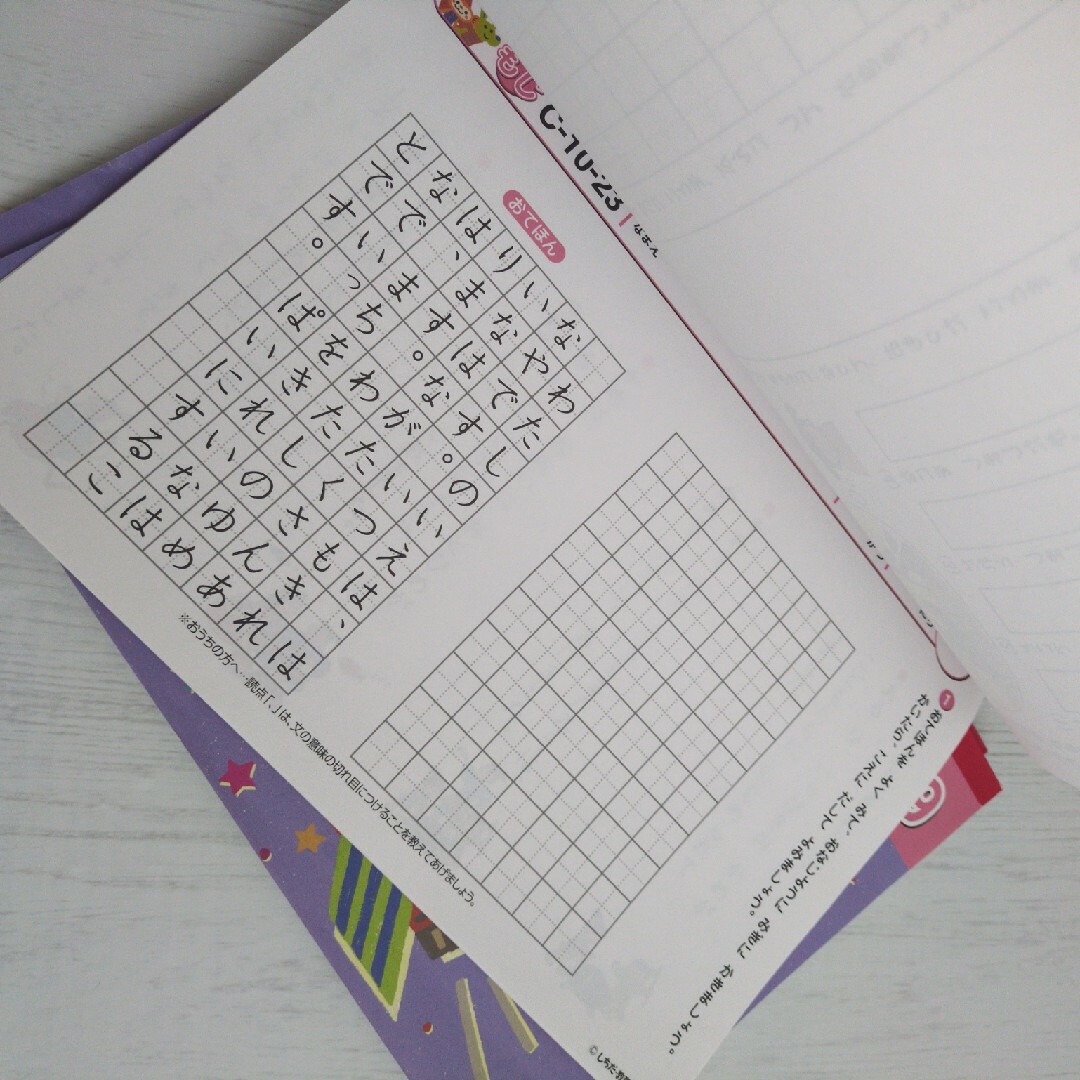 もじ
C-10-23
なまえ
がつ
にち
1
おてほんを よく みて、おなじように みぎに かきましょう。
かいたら、こえに だして よみましょう。
おてほん
わたしのいえは、は
なやです。いつもきれ
いなはながたくさんあ
ります。わたしのゆめ
は、まちをきれいなは
なでいっぱいにするこ
とです。
※おうちの方へ…読点「、」は、文の意味の切れ目につけることを教えてあげましょう。